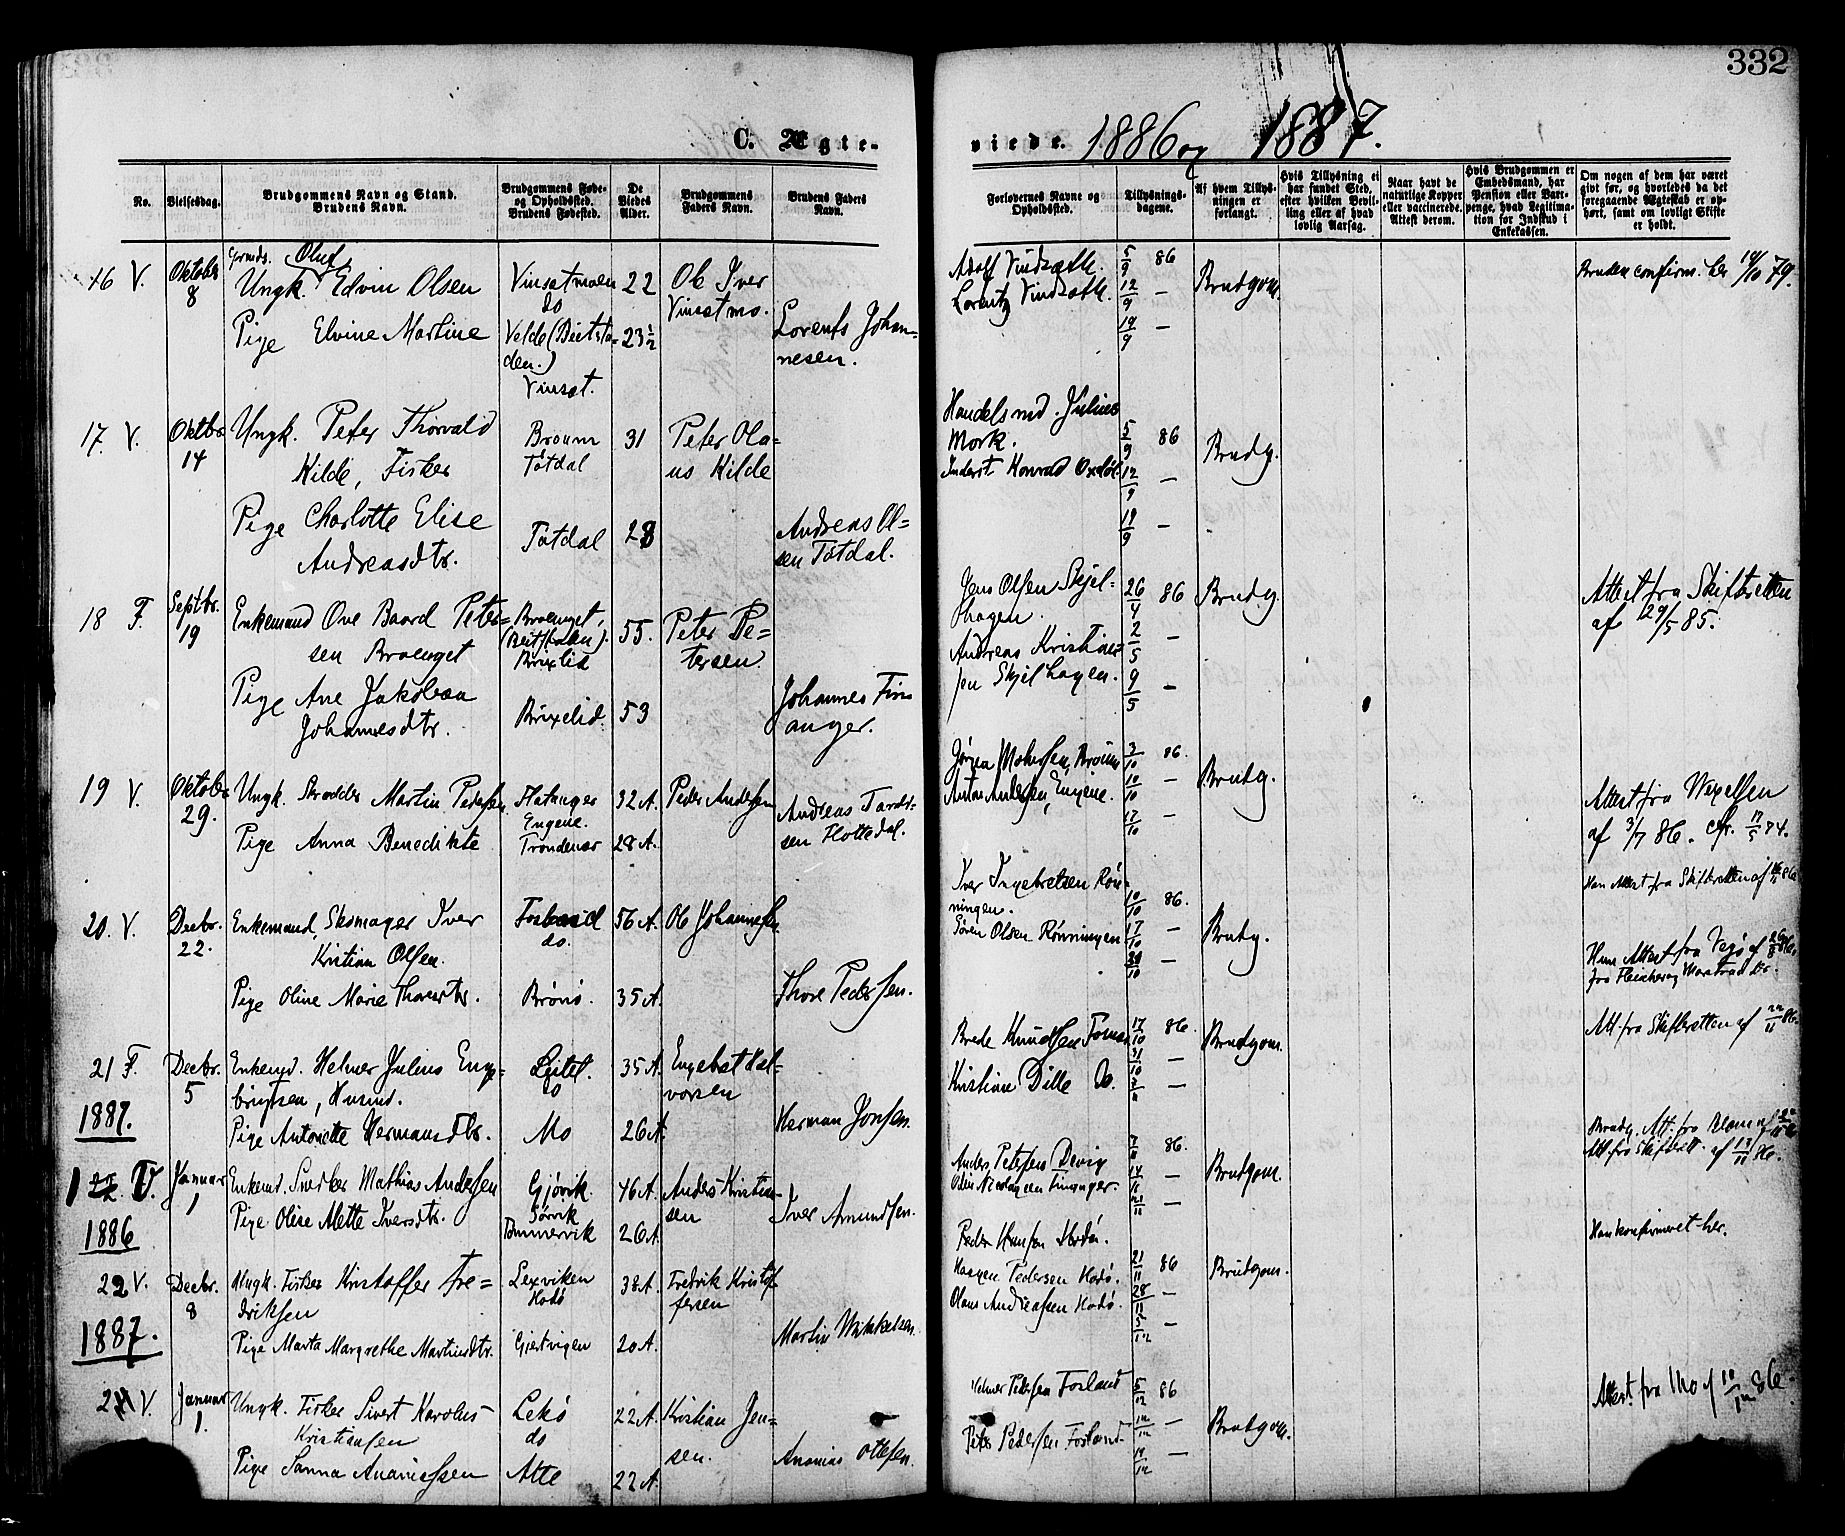 332
C. Ægte-
viede. 1886 og 1887.
No.
Vielsesdag.
Brudgommens Navn og Stand.
Brudens Navn.
Brudgommens Føde-
og Opholdsted.
Brudens Fødested.
De
Viedes
Alder.
Brudgommens
Faders Navn.
Brudens Faders
Navn.
Forlovernes Navne og
Opholdsted.
Tillysnings-
dagene.
Af hvem Tillys-
ningen er
forlangt.
Hvis Tillysning ei
har fundet Sted,
efter hvilken Bevil-
ling eller af hvad
lovlig Aarsag.
Naar havt de
naturlige Kopper
eller vaccinerede.
Attest derom.
Hvis Brudgommen er
Embedsmand, har
Pension eller Vart-
penge, hvad Legitima-
tion for Indskud i
Enkekassen.
Om nogen af dem har været
givt før, og hvorledes da det
foregaaende Ægteskab er op-
hørt, samt om lovligt Skifte
er holdt.
16 V.
Oktober
8
Oluf
Ungk. Edvin Olsen
Pige Elvine Martine
Vinsatmoen
do
Velde (Beitsta-
den.)
Vinsat.
22
23½
Ole Iver
Vinsatmo.
Lorents Johan-
nesen.
Adolf Vindsæth.
Lorentz Vindsæth.
5/9 86
12/9 —
19/9 —
Brudgom.
Bruden confirm. her 19/10 79.
17. V.
Oktbr
14
Ungk. Peter Thorvald
Hilde, Fisker
Pige Charlotte Elise
Andreasdtr.
Braum
Tøtdal
Tøtdal
31
28
Peter Ola-
us Hilde
Andreas Ol-
sen Tøtdal.
Handelsmd. Julius
Mørk.
Inderst Konrad Oxdøl
5/9 86
12/9 —
19/9 —
Brudg.
18 F.
Septbr.
19
Enkemand Ove Baard Peter-
sen Braenget
Pige Ane Jakobea
Johannesdtr.
Braenget,
(Beitstaden).
Brixelid
Brixelid.
55.
53
Peter Pe-
tersen.
Johannes Fin-
anger.
Jens Olsen Skjel-
hagen.
Andreas Kristian-
sen Skjelhagen.
26/4 86
2/5 —
9/5 —
Brudg.
Attest fra Skifteretten
af 29/5 85.
19 V.
Oktober
29.
Ungk. Skrædder Martin Pedersen
Pige Anna Benedikte
Flatanger
Engene.
Trondenæs
32 A.
28 A.
Peder Andersen
Andreas Tords-
sen Flottedal.
Anton Andersen, Engene.
3/10 86.
10/10 —
17/10 —
Brudg.
Attest fra Wexelsen
af 3/7 86. cfr. 17/5 74.
20. V.
Decbr.
22.
Enkemand, Skomager Iver
Kristian Olsen.
Pige Oline Marie Thoresdtr.
do.
Brønø.
56 A.
35 A.
Ole Johannesen
Thore Pedersen.
Iver Ingebretsen Røn-
ningen.
Søren Olsen Rønningen
10/10 86.
17/10 —
Brudg.
Han Attest fra Skifteretten af
Hun Attest fra Vegø af
21 F.
Decbr.
5
Enkemd. Helmer Julius Enge-
brigtsen, Husmd.
Pige Antonette Hermansdtr.
do
Mo
35 A.
26 A.
Engebret Hal-
vorsen
Herman Jonsen.
Brede Knudsen
Kristian Dille
17/10 86.
31/10 —
Brudgom.
Att. fra Skifteretten af
1887.
Januar
1
Enkemd. Snedker Mathias Andersen
Pige Oline Mette Iversdtr.
Gjøvik.
Tømmervik
46 A.
26 A.
Anders Kristian-
sen
Iver Amundsen.
Anders Petersen Devig
Olin Nicolaysen Finanger.
86.
Brudgom.
Att. fra Skifterett. af
1886
22 V.
Decbr.
8
Ungk. Fisker Kristoffer Fre-
driksen
Pige Marta Margrethe Martinsdtr.
Lexviken
Hodø
Gjestvigen
38 A.
20 A.
Fredrik Kristof-
fersen
Martin Mikkelsen.
Peder Hansen Hodø.
Haagen Pedersen Hodø.
Olaus Andreassen Hodø.
21/11 86
28/11 —
5/12 —
Brudgom.
Han konfirmeret her.
1887.
V.
Januar
1.
Ungk. Fisker Sivert Karolus
Kristiansen
Pige Sanna Ananiassen
Lekø
do
Alte
22 A.
22 A.
Kristian Jen-
sen.
Ananias Ottesen.
Helmer Pedersen Forland
Peter Pedersen Forland
5/12 86
12/12 —
19/12 —
Brudgom.
Attest fra Mo af 10/12 86.